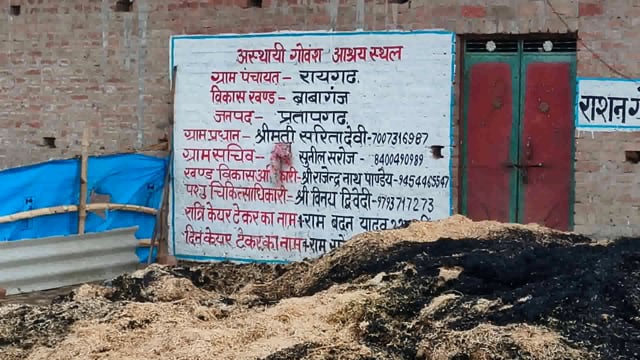 अस्थायी गोवंश आश्रय स्थल
ग्राम पंचायत- रायगढ़
विकास खण्ड- ब्राबागंज
जनपद- प्रतापगढ़
ग्राम प्रधान- श्रीमती सरितादेवी-7007316987
ग्राम सचिव- सुनील सरोज - 8400490989
खण्ड विकासअधिकारी-श्रीराजेन्द्र नाथ पाण्डेय-9454465547
पशु चिकित्साधिकारी-श्री विनय द्विवेदी-9793717273
रात्रि केयर टेकर का नाम राम बदन यादव
दिन केयर टेकर का नाम राम
राशन